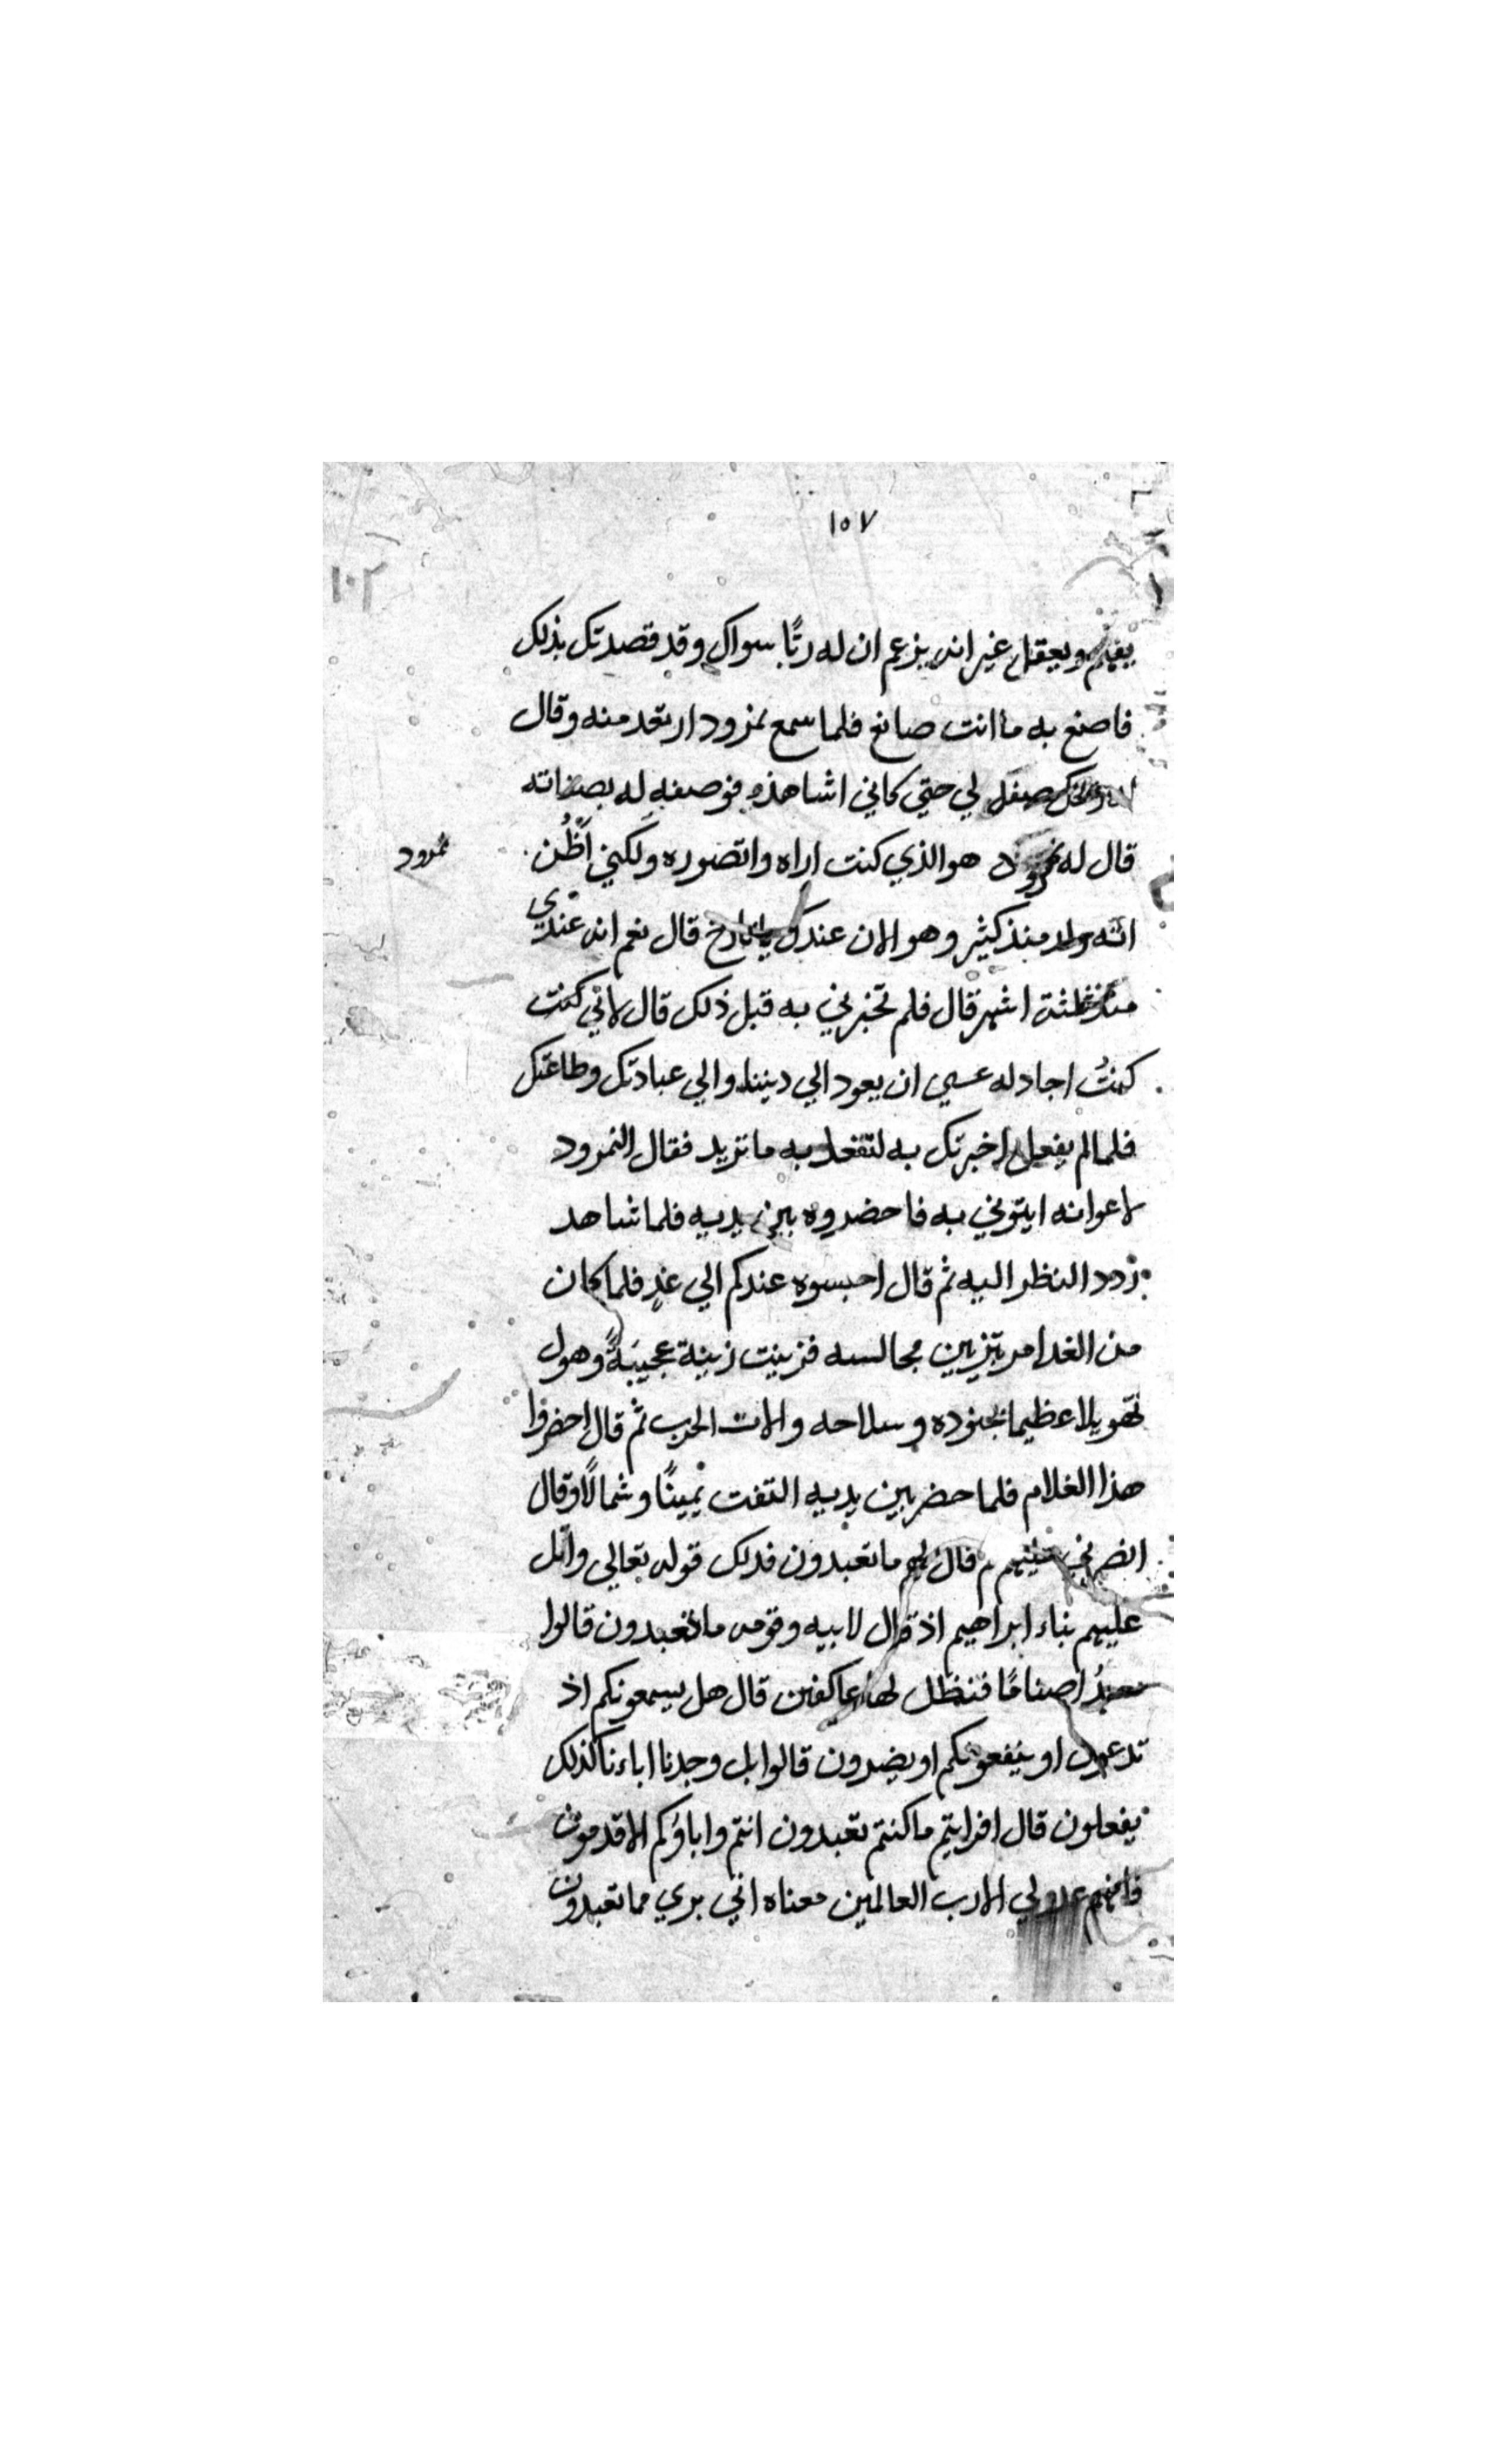 ١٥٧
١٠٢
يفهم ويعقل غير انه يزعم ان له ربًا سواك وقد قصدتك بذلك
فاصنع به ما انت صانع فلما سمع نمزود ارتعد منه وقال
صفه لي حتي كاني اشاهذه فوصفه له بصفاته
قال له نمرود هو الذي كنت اراه واتصوره ولكني اظُن
نمرود
انه ولد منذ كثير وهو الان عندك ياتارخ قال نعم انه عندي
منذ ثلثة اشهر قال فلم تخبرني به قبل ذلك قال لاني كنت
كنتُ اجادله عسي ان يعود الي ديننا والي عبادتك وطاعتك
فلما لم يفعل اخبرتك به لتفعل به ما تريد فقال النمرود
لاعوانه ايتوني به فاحضروه بين يديه فلما شاهد
زدد النظر اليه ثم قال احبسوه عندكم الي غدٍ فلما كان
من الغد امر بتزيين مجالسه فزينت زينة عجيبةً وهول
تهويلا عظيما بجنوده وسلاحه والات الحرب ثم قال احضروا
هذا الغلام فلما حضر بين يديه التفت يمينًا وشمالًا وقال
قال لهم ما تعبدون فذلك قوله تعالي واتل
عليهم نباء ابراهيم اذ قال لابيه وقومه ما تعبدون قالوا
نعبدُ اصنامًا فنظل لها عاكفين قال هل يسمعونكم اذ
تدعون او ينفعونكم او يضرون قالوا بل وجدنا اباءنا كذلك
يفعلون قال افرايتم ما كنتم تعبدون انتم واباؤكم الاقدمون
فانهم عدو لي الا رب العالمين معناه اني بري مما تعبدون